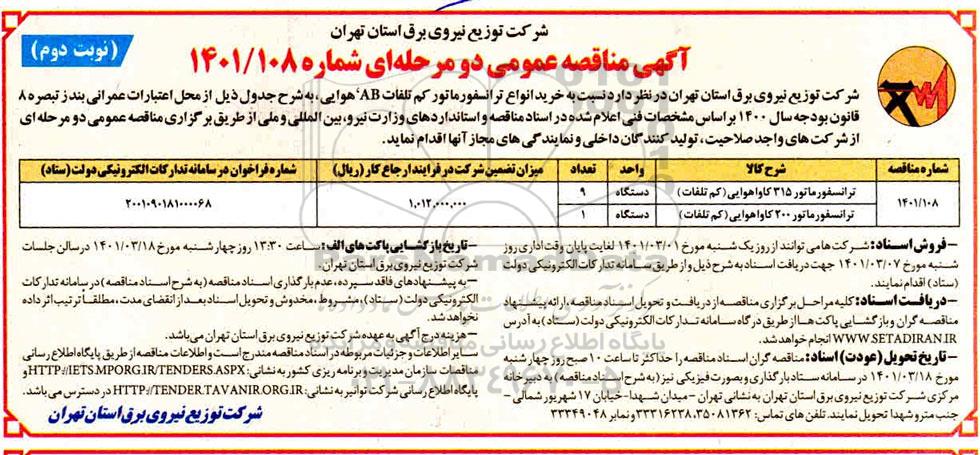 شرکت توزیع نیروی برق استان تهران
آگهی مناقصه عمومی دو مرحله‌ای شماره ۱۴۰۱/۱۰۸
(نوبت دوم)
شرکت توزیع نیروی برق استان تهران در نظر دارد نسبت به خرید انواع ترانسفورماتور کم تلفات AB، هوایی، به شرح جدول ذیل از محل اعتبارات عمرانی بند ز تبصره ۸
قانون بودجه سال ۱۴۰۰ براساس مشخصات فنی اعلام شده در اسناد مناقصه و استانداردهای وزارت نیرو، بین المللی و ملی از طریق برگزاری مناقصه عمومی دو مرحله ای
از شرکت های واجد صلاحیت، تولید کنندگان داخلی و نمایندگی های مجاز آنها اقدام نماید.
شماره مناقصه شرح کالا واحد تعداد میزان تضمین شرکت در فرایند ارجاع کار (ریال) شماره فراخوان در سامانه تدارکات الکترونیکی دولت (ستاد)
۱۴۰۱/۱۰۸ ترانسفورماتور ۳۱۵ کاوا هوایی (کم تلفات) دستگاه ۹ ۱,۰۱۲,۰۰۰,۰۰۰ ۲۰۰۱۰۹۰۱۸۱۰۰۰۰۶۸
ترانسفورماتور ۲۰۰ کاوا هوایی (کم تلفات) دستگاه ۱
–فروش اسناد: شرکت ها می توانند از روز یک شنبه مورخ ۱۴۰۱/۰۳/۰۱ لغایت پایان وقت اداری روز
شنبه مورخ ۱۴۰۱/۰۳/۰۷ جهت دریافت اسناد به شرح ذیل و از طریق سامانه تدارکات الکترونیکی دولت
(ستاد) اقدام نمایند.
–دریافت اسناد: کلیه مراحل برگزاری مناقصه از دریافت و تحویل اسناد مناقصه، ارائه پیشنهاد
مناقصه گران و بازگشایی پاکت ها از طریق درگاه سامانه تدارکات الکترونیکی دولت (ستاد) به آدرس
WWW.SETADIRAN.IR انجام خواهد شد.
–تاریخ تحویل (عودت) اسناد: مناقصه گران اسناد مناقصه را حداکثر تا ساعت ۱۰ صبح روز چهار شنبه
مورخ ۱۴۰۱/۰۳/۱۸ در سامانه ستاد بارگذاری و بصورت فیزیکی نیز (به شرح اسناد مناقصه) به دبیرخانه
مرکزی شرکت توزیع نیروی برق استان تهران به نشانی تهران – میدان شهدا–خیابان ۱۷ شهریور شمالی –
جنب مترو شهدا تحویل نمایند. تلفن های تماس: ۳۵۰۸۱۳۶۲، ۳۳۳۱۶۲۳۸ و نمابر ۳۳۳۴۹۰۴۸
–تاریخ بازگشایی پاکت های الف: ساعت ۱۳:۳۰ روز چهار شنبه مورخ ۱۴۰۱/۰۳/۱۸ در سالن جلسات
شرکت توزیع نیروی برق استان تهران.
–به پیشنهادهای فاقد سپرده، عدم بارگذاری اسناد مناقصه (به شرح اسناد مناقصه) در سامانه تدارکات
الکترونیکی دولت (ستاد)، مشروط، مخدوش و تحویل اسناد بعد از انقضای مدت، مطلقاً ترتیب اثر داده
نخواهد شد.
–هزینه درج آگهی به عهده شرکت توزیع نیروی برق استان تهران می‌باشد.
سایر اطلاعات و جزئیات مربوطه در اسناد مناقصه مندرج است و اطلاعات مناقصه از طریق پایگاه اطلاع رسانی
مناقصات سازمان مدیریت و برنامه ریزی کشور به نشانی: HTTP://IETS.MPORG.IR/TENDERS.ASPX و
پایگاه اطلاع رسانی شرکت توانیر به نشانی: HTTP://TENDER.TAVANIR.ORG.IR در دسترس می باشد.
شرکت توزیع نیروی برق استان تهران